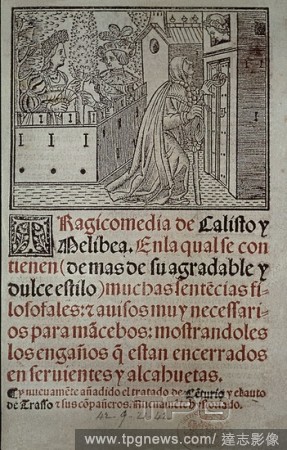 TRagicomedia de Calisto y
Melibea. En la qual se con
tienen (de mas de su agradable y
dulce estilo) muchas sentẽcias fi
losofales: ⁊ auisos muy necessari
os para mãcebos: mostrandoles
los engaños q̃ estan encerrados
en seruientes y alcahuetas.
Cy nueuamẽte añadido el tratado de Cẽturio y chauto
de Trasso ⁊ sus cõpañeros.
42-9-
www.tpgnews.com / 達志影像